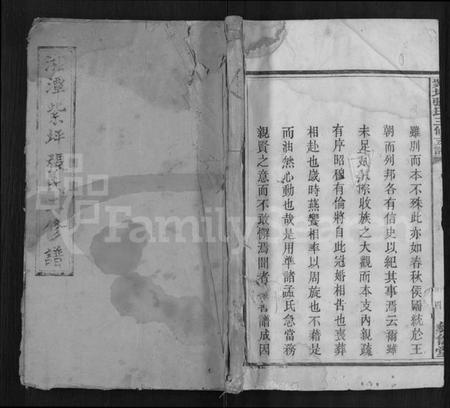 湘潭紫坪張氏三修支譜
紫坪張氏三修支譜
雖別而本不殊此亦如春秋侯國統於王
朝而列邦各有信史以紀其事焉云爾雖
未足 收族之大觀而本支內親疏
有序昭穆有倫將自此冠婚相告也喪葬
相赴也歲時燕饗相率以周旋也不藉是
而油然心動也哉是用準諸孟氏急當務
親賢之意而不敢 焉間者 譜成因
四
FamilySearch